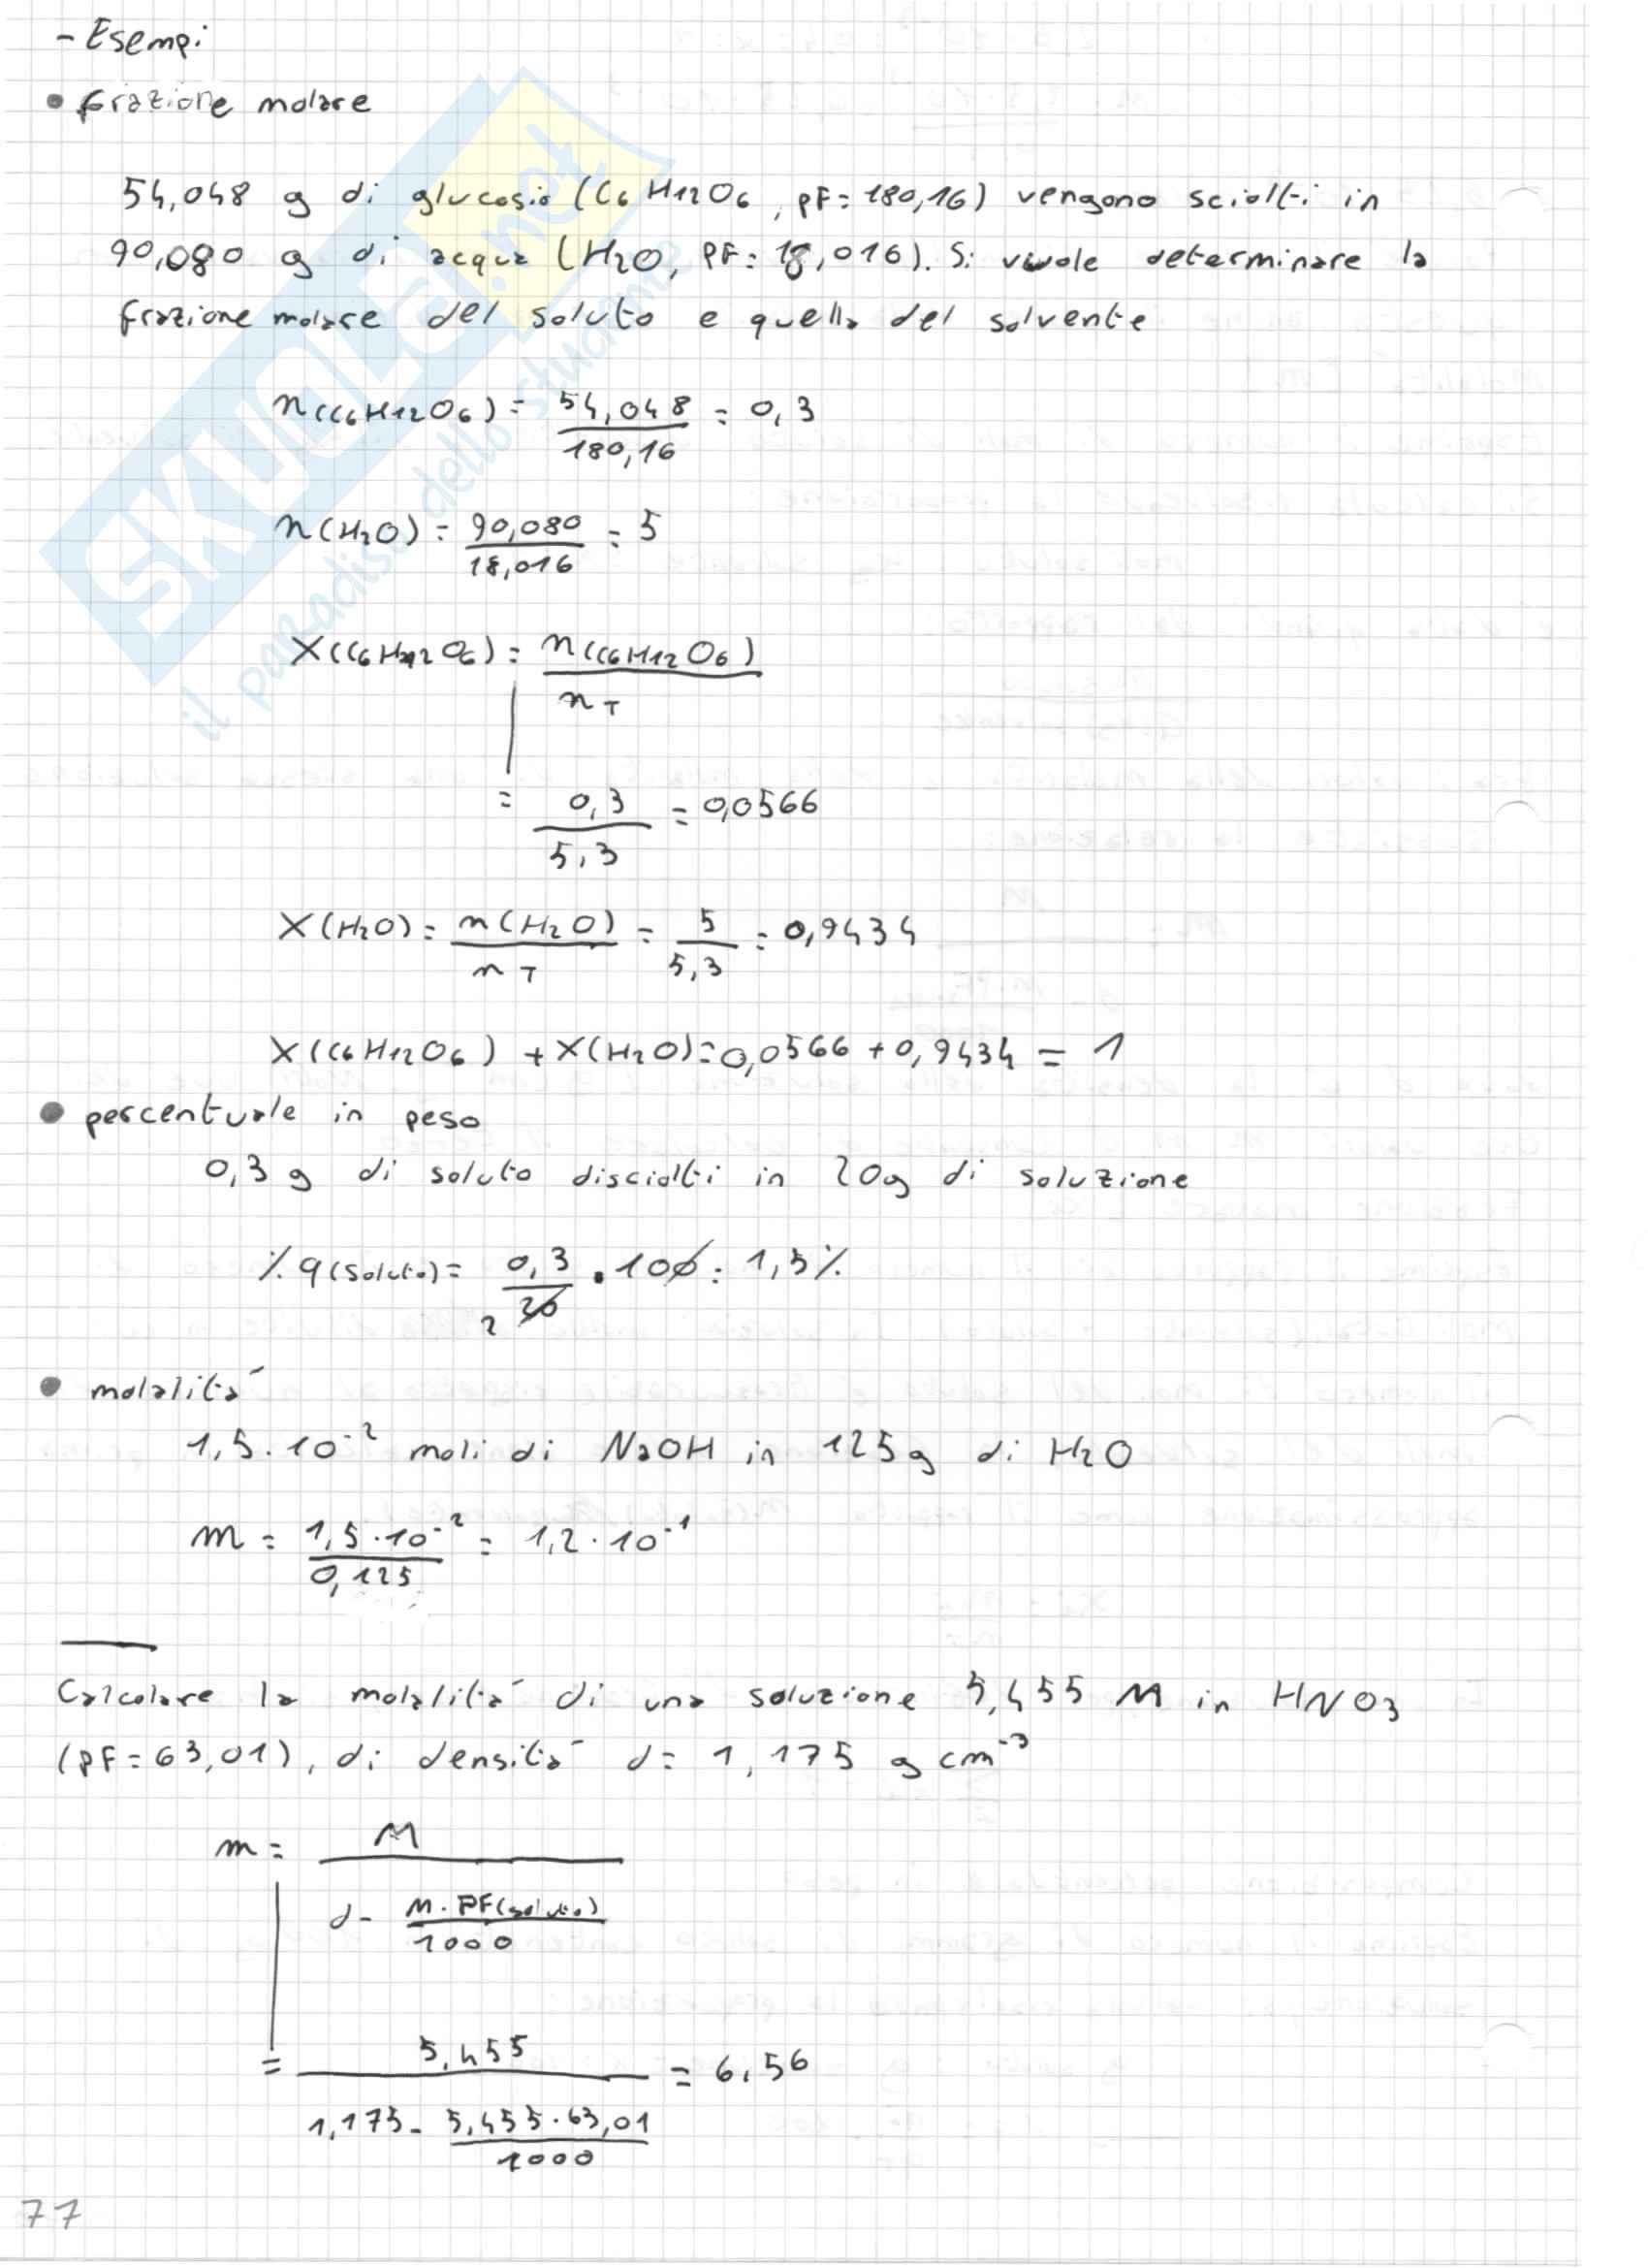 - Esempi
• frazione molare
54,048 g di glucosio (C6H12O6, PF=180,16) vengono sciolti in
90,080 g di acqua (H2O, PF=18,016). Si vuole determinare la
frazione molare del soluto e quella del solvente
n(C6H12O6) = 54,048 / 180,16 = 0,3
n(H2O) = 90,080 / 18,016 = 5
X(C6H12O6) = n(C6H12O6) / nT
= 0,3 / 5,3 = 0,0566
X(H2O) = n(H2O) / nT = 5 / 5,3 = 0,9434
X(C6H12O6) + X(H2O) = 0,0566 + 0,9434 = 1
• percentuale in peso
0,3 g di soluto disciolti in 20g di soluzione
% q(soluto) = 0,3 / 20 2 · 100 = 1,5%
• molalità
1,5 · 10⁻² moli di NaOH in 125g di H2O
m = 1,5 · 10⁻² / 0,125 = 1,2 · 10⁻¹
Calcolare la molalità di una soluzione 5,455 M in HNO3
(PF=63,01), di densità d= 1,175 g cm⁻³
m = M / (d - M · PF(soluto) / 1000)
= 5,455 / (1,175 - 5,455 · 63,01 / 1000) = 6,56
77
SKUOLA.net
il paradiso dello studente